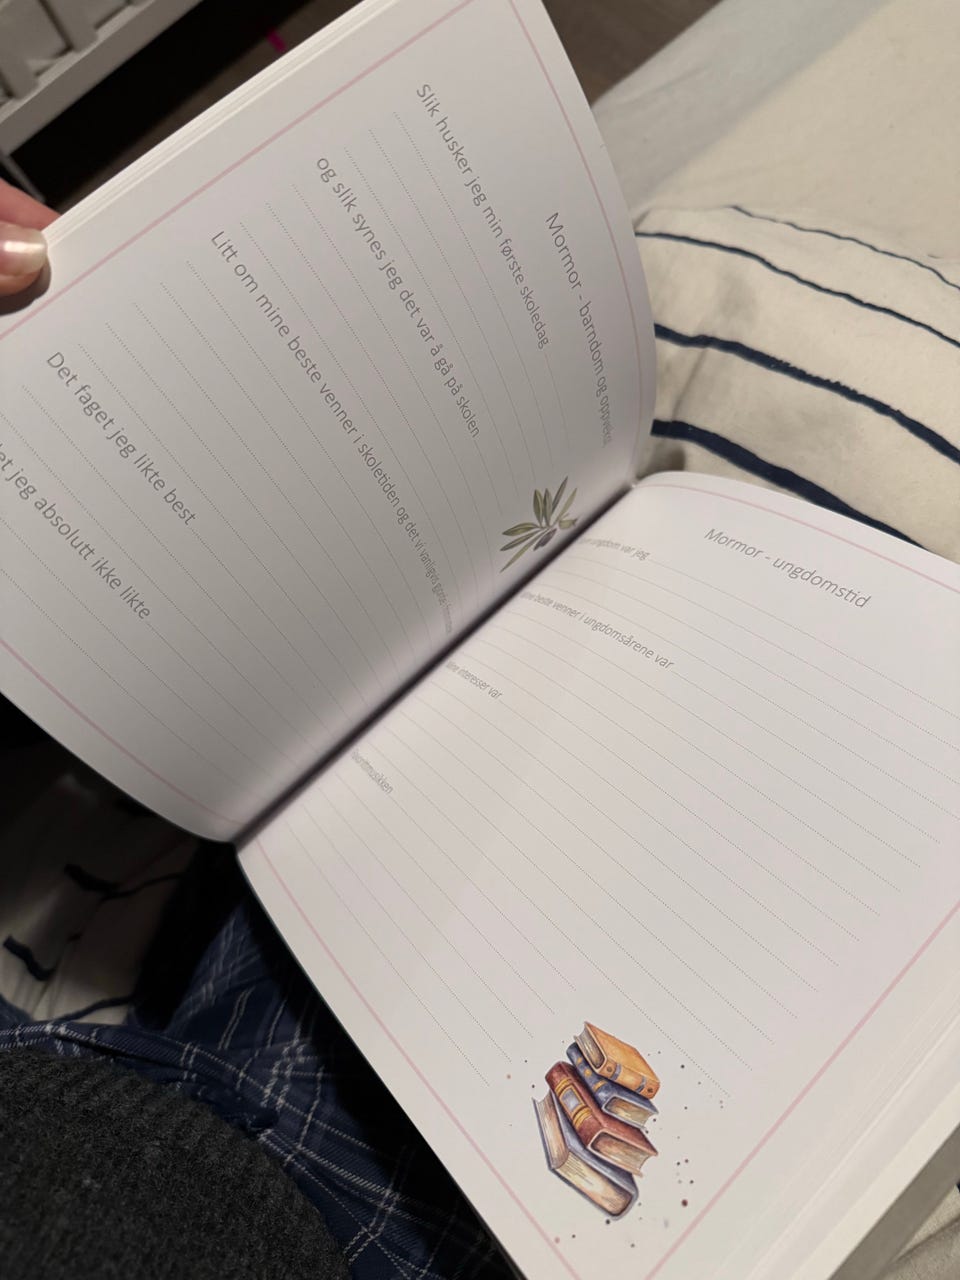 Mormor - barndom og oppvekst
Slik husker jeg min første skoledag
og slik synes jeg det var å gå på skolen
Litt om mine beste venner i skoletiden og det vi vanligvis gjorde
Det faget jeg likte best
jeg absolutt ikke likte
Mormor - ungdomstid
ungdom var jeg
Mine beste venner i ungdomsårene var
Mine interesser var